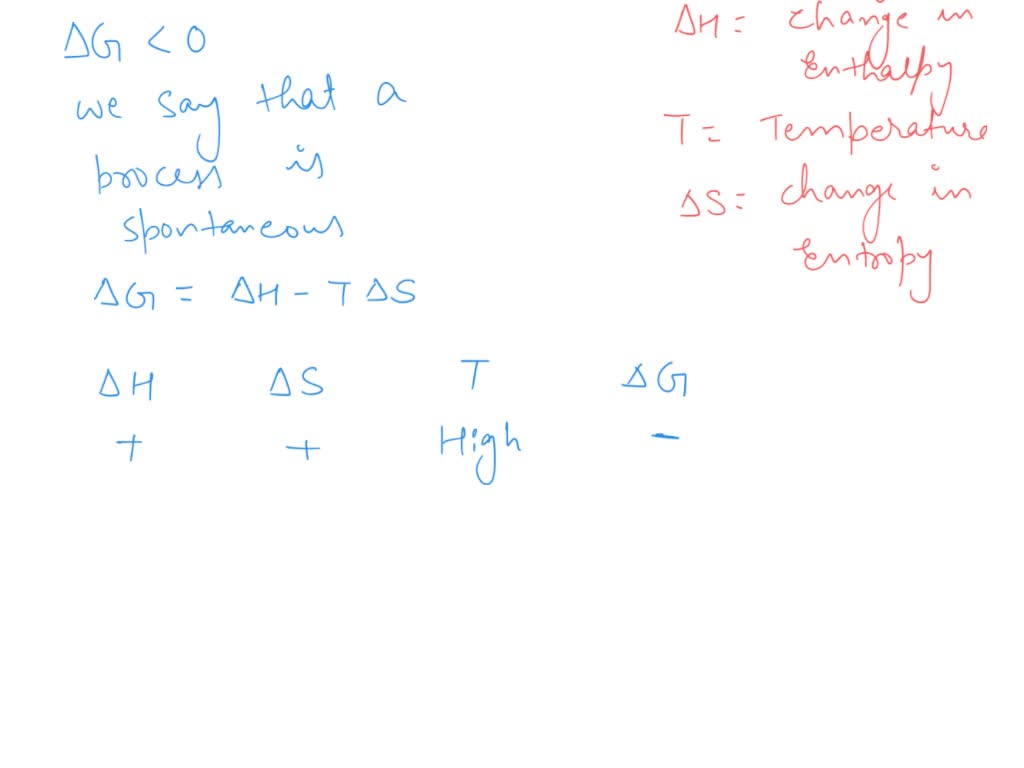 ΔG < 0
we say that a
process is
spontaneous
ΔG = ΔH - TΔS
ΔH = change in
Enthalpy
T = Temperature
ΔS = change in
Entropy
ΔH ΔS T ΔG
+ + High -